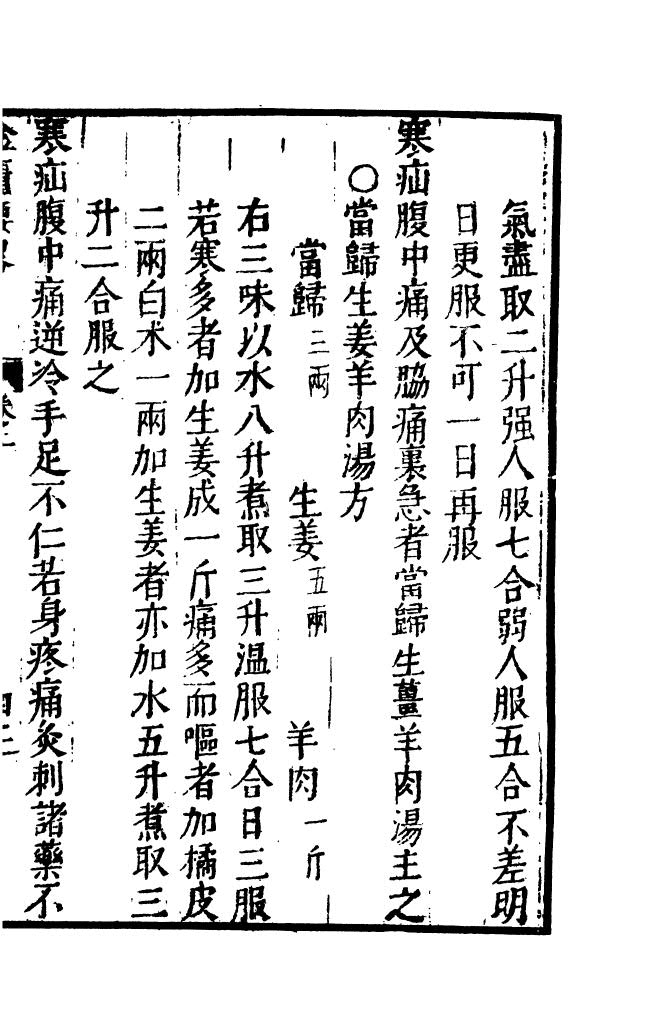 氣盡取二升强人服七合弱人服五合不差明
日更服不可一日再服
寒疝腹中痛及脇痛裏急者當歸生薑羊肉湯主之
〇當歸生姜羊肉湯方
當歸三兩 生姜五兩 羊肉一斤
右三味以水八升煮取三升温服七合日三服
若寒多者加生姜成一斤痛多而嘔者加橘皮
二兩白术一兩加生姜者亦加水五升煮取三
升二合服之
寒疝腹中痛逆冷手足不仁若身疼痛灸刺諸藥不